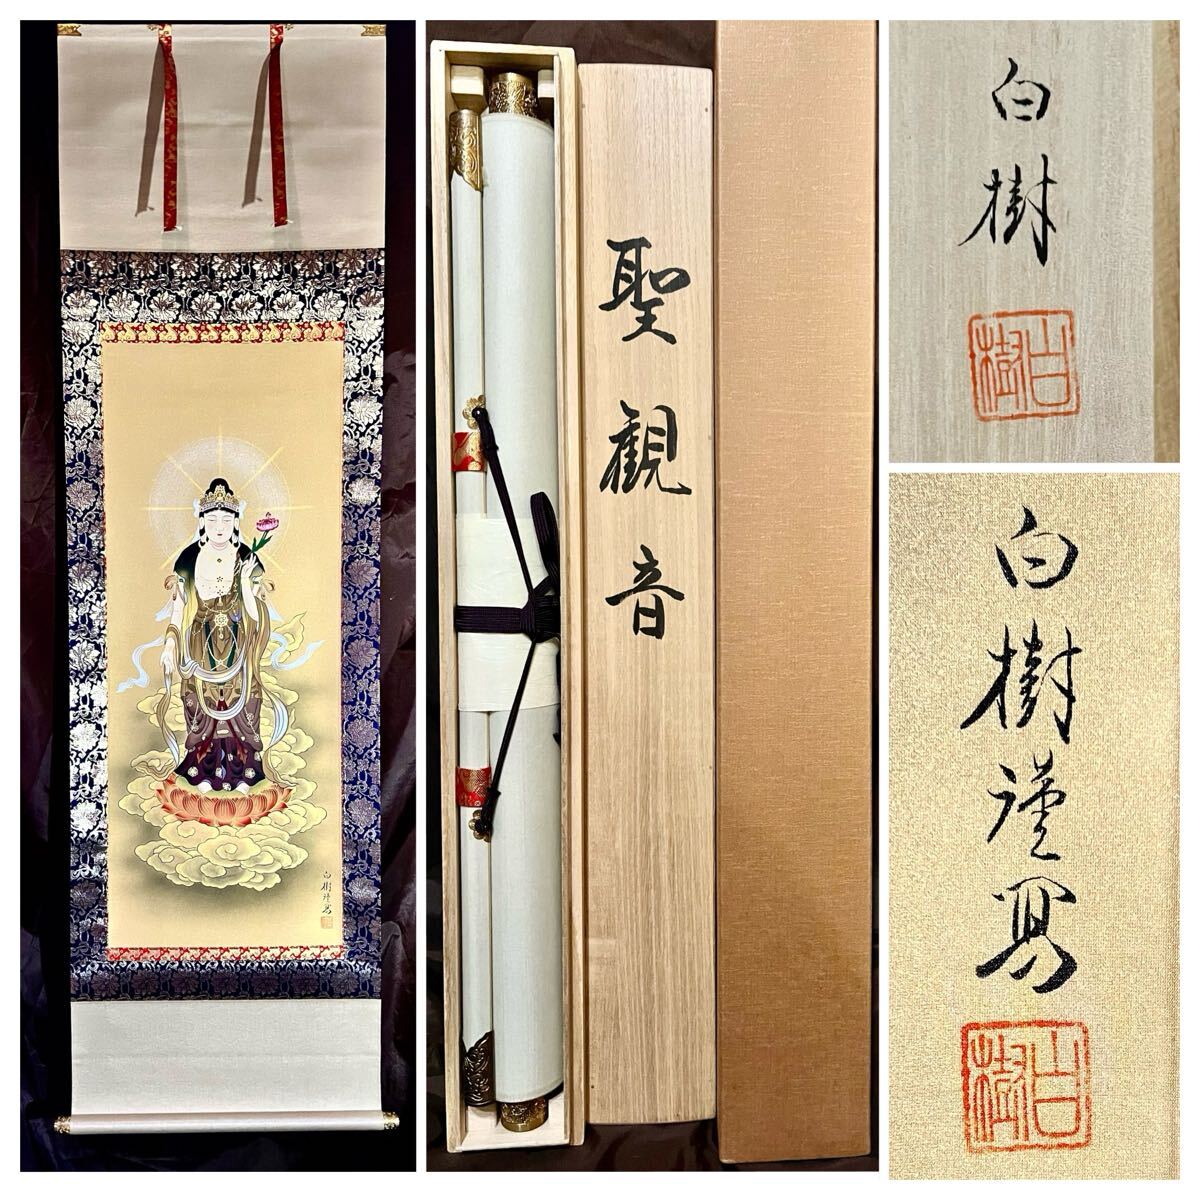 白樹謹写
聖觀音
白樹
白樹
白樹謹写
白樹